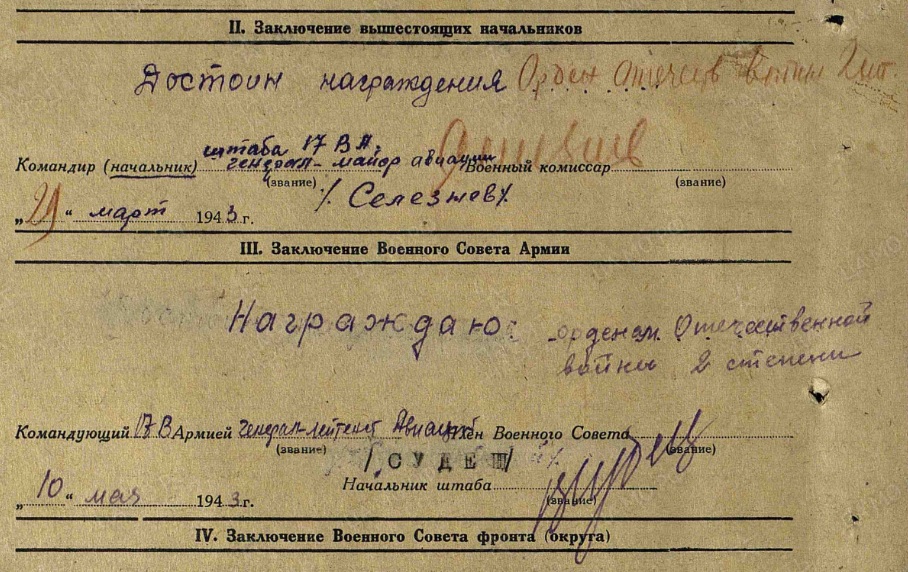 II. Заключение вышестоящих начальников
Достоин награждения Орден Отечеств войны 2 ст.
штаба 17 ВА.
Командир (начальник) генерал-майор авиации Военный комиссар
(звание) (звание)
/Селезнев/
„ 21 “ март 1943 г.
III. Заключение Военного Совета Армии
Награждаю: орденом Отечественной
войны 2 степени
Командующий 17 В Армией Генерал-лейтенант Авиации Член Военного Совета
(звание) (звание)
/СУДЕЦ/
Начальник штаба
(звание)
„ 10 “ мая 1943 г.
IV. Заключение Военного Совета фронта (округа)